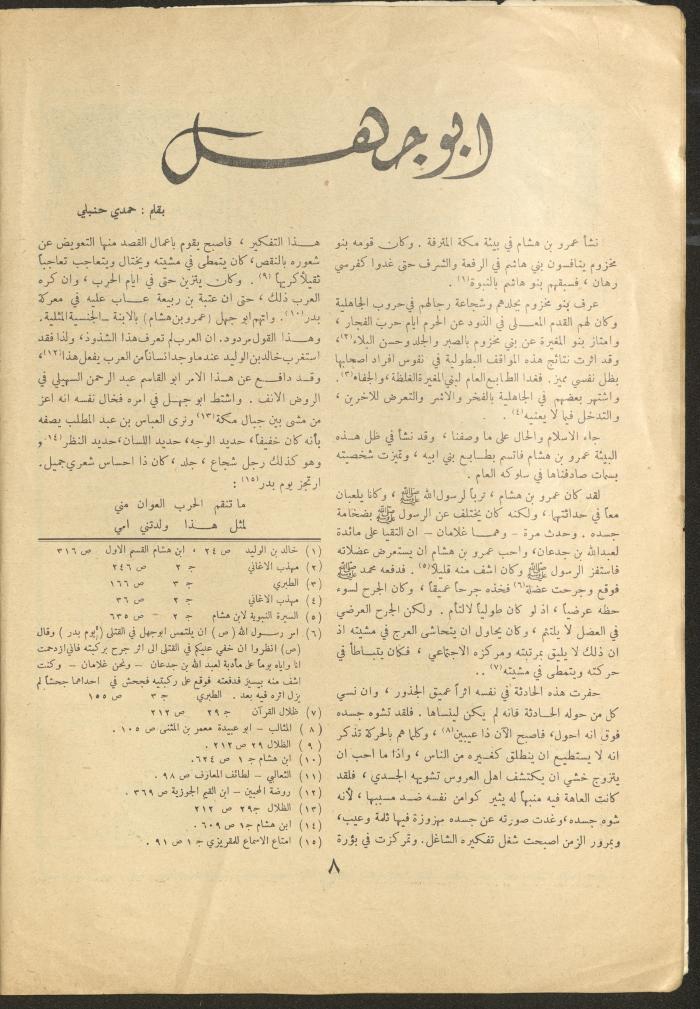 ابو جهل
بقلم : حمدي حنبلي
نشأ عمرو بن هشام في بيئة مكة المترفة . وكان قومه بنو
مخزوم يتافسون بني هاشم في الرفعة والشرف حتى غدوا كفرسي
رهان ، فسبقهم بنو هاشم بالنبوة(١) .
عرف بنو مخزوم بجلدهم وشجاعة رجالهم في حروب الجاهلية
وكان لهم القدم المعـــلى في الذود عن الحرم ايام حرب الفجار ،
وامتاز بنو المغيرة عن بني مخزوم بالصبر والجلد وحسن البلاء(٢)،
وقد اثرت نتائج هذه المواقف البطولية في نفوس افراد اصحابها
بظل نفسي مميز . فغدا الطابع العام لبني المغيرة الغلظة ، والجفاء(٣).
واشتهر بعضهم في الجاهلية بالفخر والاشر والتعرض للاخرين ،
والتدخل فيما لا يعنيه(٤) .
جاء الاسلام والحال على ما وصفنا ، وقد نشأ في ظل هـــذه
البيئة عمرو بن هشام فاتسم بطـــابع بني ابيه ، وتميزت شخصيته
بسمات صادفناها في سلوكه العام .
لقد كان عمرو بن هشام ، ترباً لرسول الله ﷺ ، وكانا يلعبان
معاً في حداثتها ، ولكنه كان يختلف عن الرسول ﷺ بضخامة
جسده . وحدث مرة – وهمـــا غلامان – ان التقيا على مائدة
لعبدالله بن جدعان، واحب عمرو بن هشام ان يستعرض عضلاته
فاستفز الرسول ﷺ وكان اشف منه قليلا(٥) . فدفعه محمد ﷺ
فوقع وجرحت عضلة(٦) فخذه جرحاً عميقاً ، وكان الجرح لسوء
حظه عرضياً ، اذ لو كان طولياً لالتأم . ولكن الجرح العرضي
في العضل لا يلتئم ، وكان يحاول ان يتحاشى العرج في مشيته اذ
ان ذلك لا يليق بمرتبته ومركزه الاجتماعي ، فكان يتبـــاطأ في
حركته ويتمطى في مشيته(٧) . .
حفرت هذه الحادثة في نفسه اثراً عميق الجذور ، وان نسي
كل من حوله الحادثة فانه لم يكن لينساها . فلقد تشوه جسده
فوق انه احول، فاصبح الآن ذا عيبين(٨) ، وكلما هم بالحركة تذكر
انه لا يستطيع ان ينطلق كغيره من الناس ، واذا ما احب ان
يتزوج خشي ان يكتشف اهل العروس تشويهه الجسدي ، فلقد
كانت العاهة فيه منبهاً له يثير كوامن نفسه ضد مسببها ، لأنه
شوه جسده، وغدت صورته عن جسده مهزوزة فيها ثلمة وعيب،
وبمرور الزمن اصبحت شغل تفكيره الشاغل. وتمركزت في بؤرة
هـــذا التفكير ، فاصبح يقوم باعمال القصد منها التعويض عن
شعوره بالنقص، كان يتمطى في مشيته ويختال ويتعاجب تعاجباً
ثقيلاً كريهاً (٩) . وكان يتزين حتى في ايام الحرب ، وان كره
العرب ذلك ، حتى ان عتبة بن ربيعة عـــاب عليه في معركة
بدر(١٠). واتهم ابو جهل ( عمرو بن هشام ) بالابنة – الجنسية المثلية.
وهـــذا القول مردود. ان العرب لم تعرف هذا الشذوذ، ولذا فقد
استغرب خالد بن الوليد عندما وجد انساناً من العرب يفعل هذا(١٢)،
وقـــد دافـــع عن هـــذا الامر ابو القاسم عبد الرحمن السهيلي في
الروض الانف . واشتط ابو جهـــل في امره فخال نفسه انه اعز
من مشى بين جبال مكة(١٣) ونرى العباس بن عبد المطلب يصفه
بأنه كان خفيفاً، حديد الوجه، حديد اللسان، حديد النظر(١٤) و
وهو كذلك رجل شجاع ، جلد ، كان ذا احساس شعري جميل.
ارتجز يوم بدر(١٥) :
ما تنقم الحرب العوان مني
لمثل هـــذا ولدتني امي
(١) خالد بن الوليد ص ٢٤ ، ابن هشام القسم الاول ص ٣١٦
(٢) مهذب الاغاني ج ٢ ص ٢٤٦
(٣) الطبري ج ٣ ص ١٦٦
(٤) مهذب الاغاني ج ٢ ص ٣٦
(٥) السيرة النبوية لابن هشام ج ٢ – ص ٦٣٥
(٦) امر رســـول الله (ص) ان يلتمس ابوجهل في القتلى (أيوم بدر ) وقال
(ص) انظروا ان خفي عليكم في القتلى الى اثر جرح بركبته فاني ازدحمت
انا واياه يوماً على مأدبة لعبد الله بن جدعان – ونحن غلامان – وكنت
اشف منه بيسير فدفعته فوقع على ركبتيه فجحش في احداهما جحشاً لم
يزل اثره فيه بعد . الطبري ج ٣ ص ١٥٥
(٧) ظلال القرآن ج ٢٩ ص ٢١٢
( ٨ ) المثالب – ابو عبيدة معمر بن المثنى ص ١٠٥ .
( ٩ ) الظلال ٢٩ ص ٢١٢ .
(١٠) ابن هشام ج ١ ص ٦٢٤.
(١١) الثعالبي – لطائف المعارف ص ٩٨ .
(١٢) روضة المحبين – ابن القيم الجوزية ص ٣٦٩ .
(١٣) الظلال ج٢٩ ص ٢١٢
(١٤) ابن هشام ج ١ ص ٦٠٩ .
(١٥) امتاع الاسماع للمقريزي ج ١ ص ٩١ .
٨